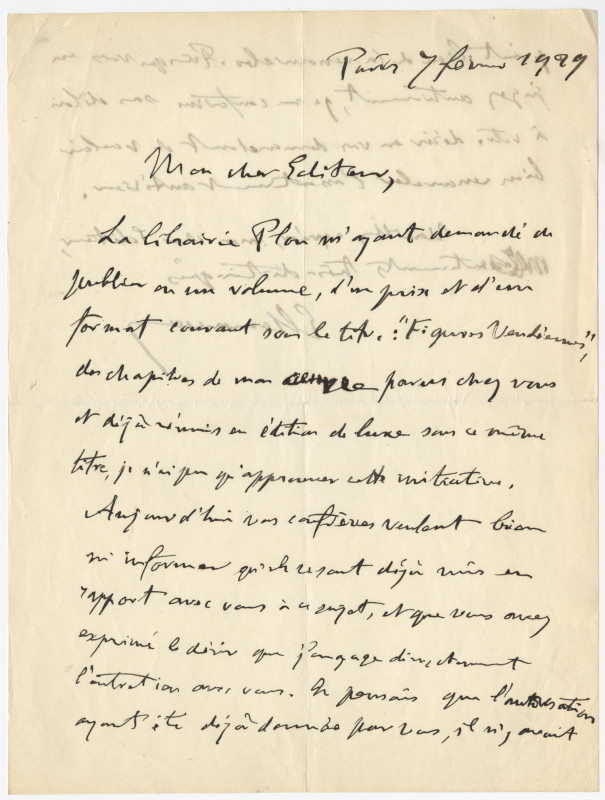 Paris 7 février 1929
Mon cher Editeur,
La librairie Plon m'ayant demandé de
publier en un volume, d'un prix et d'un
format courant sous le titre : "Figures Vendéennes",
des chapitres de mon œuvre parus chez vous
et déjà réunis en édition de luxe sous ce même
titre, je n'ai pu qu'approuver cette initiative.
Aujourd'hui vos confrères veulent bien
m'informer qu'ils se sont déjà mis en
rapport avec vous à ce sujet, et que vous avez
exprimé le désir que j'engage directement
l'entretien avec vous. Je pensais que l'autorisation
ayant été déjà donnée par vous, il n'y avait